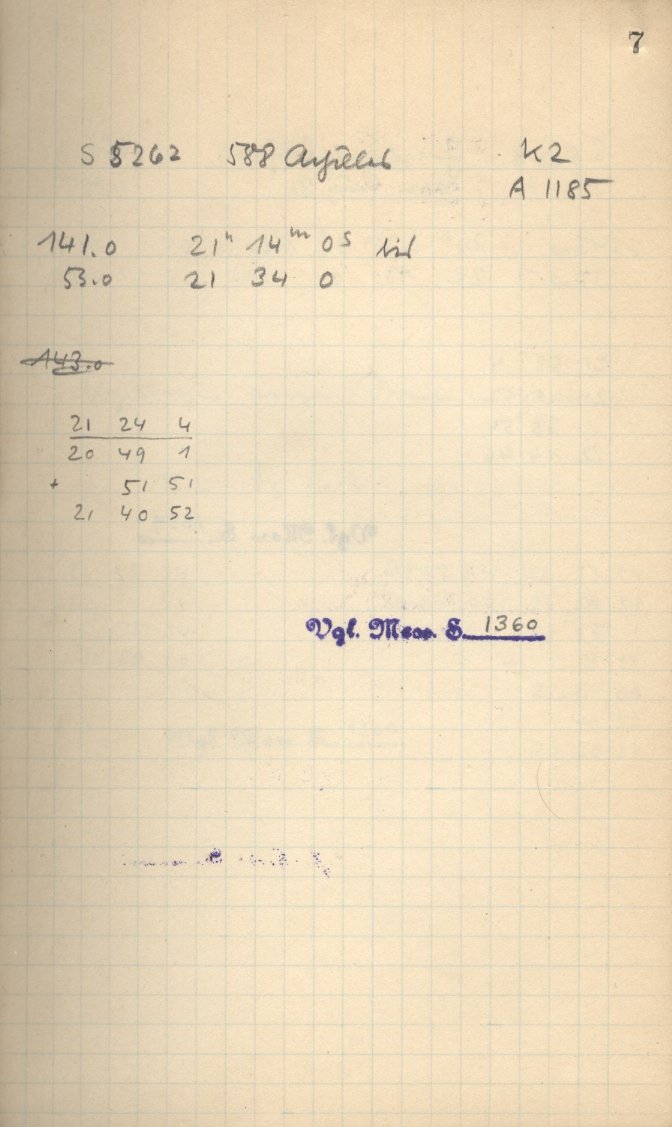 7
S 5262 588 Achilles K2
A 1185
141.0 21h 14m 0s bis
53.0 21 34 0
143.0
21 24 4
20 49 1
+ 51 51
21 40 52
Vgl. Mess. S. 1360